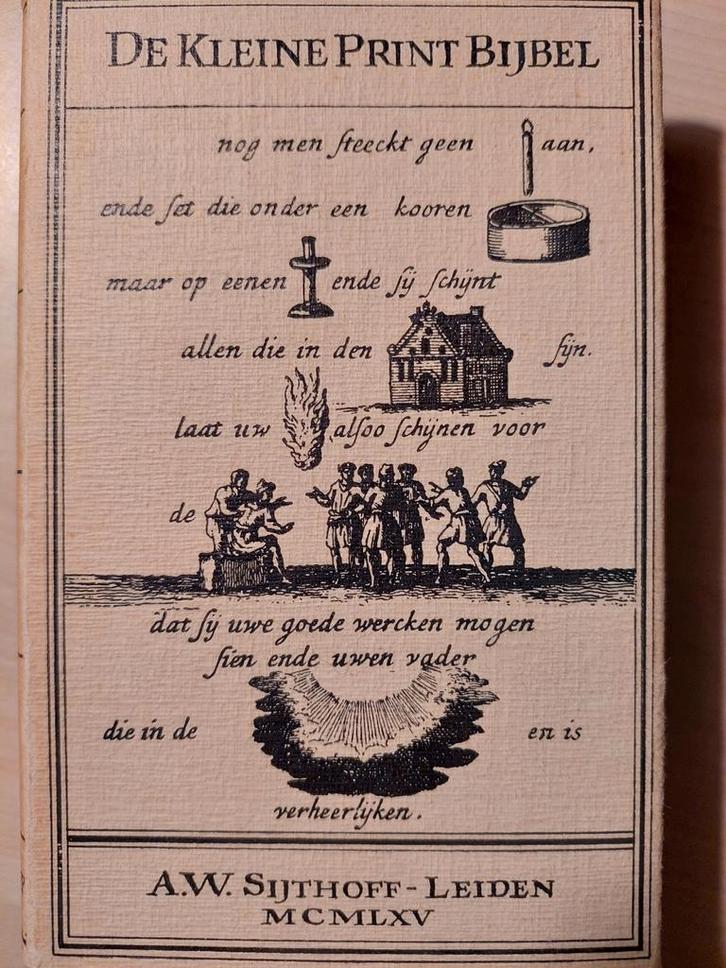 DE KLEINE PRINT BIJBEL
nog men ſteeckt geen aan,
ende ſet die onder een kooren
maar op eenen ende ſij ſchijnt
allen die in den ſijn.
laat uw alſoo ſchijnen voor
de
dat ſij uwe goede wercken mogen
ſien ende uwen vader
die in de en is
verheerlijken.
A.W. SIJTHOFF - LEIDEN
MCMLXV